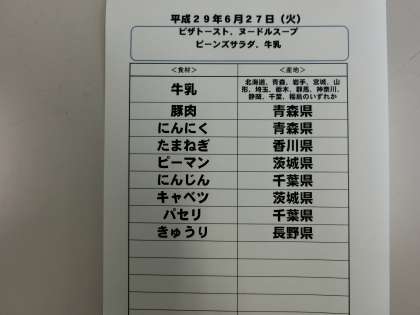 平成29年6月27日（火）
ピザトースト、ヌードルスープ
ビーンズサラダ、牛乳
＜食材＞ ＜産地＞
牛乳 北海道、青森、岩手、宮城、山
形、埼玉、栃木、群馬、神奈川、
静岡、千葉、福島のいずれか
豚肉 青森県
にんにく 青森県
たまねぎ 香川県
ピーマン 茨城県
にんじん 千葉県
キャベツ 茨城県
パセリ 千葉県
きゅうり 長野県